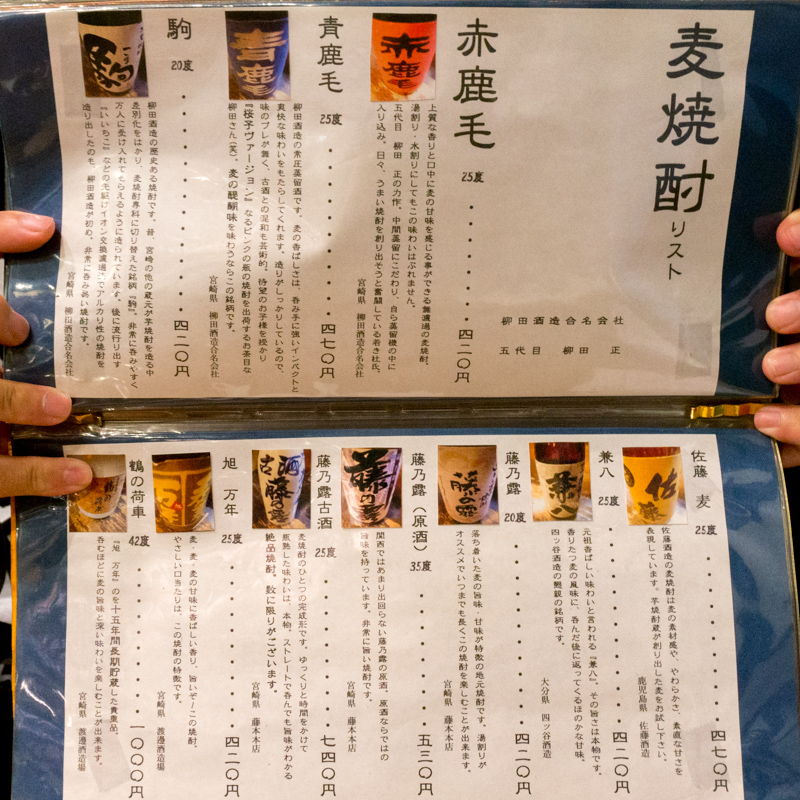 麦焼酎リスト
柳田酒造合名会社
五代目 柳田 正
赤鹿毛 25度・・・・・・・・四二〇円
上質な香りと口中に麦の甘味を感じる事ができる無濾過の麦焼酎。
湯割り・水割りにしてもこの味わいはぶれません。
五代目 柳田 正の力作。中間蒸留にこだわり、自ら蒸留機の中に
入り込み。日々、うまい焼酎を創り出そうと奮闘している若き杜氏。
宮崎県 柳田酒造合名会社
赤鹿毛
青鹿毛 25度・・・・・・・・・四七〇円
柳田酒造の常圧蒸留酒です。麦の香ばしさは、呑み手に強いインパクトと
爽快な味わいをもたらしてくれます。造りがしっかりしているので、
味のブレが無く、古酒との混和も芸術的。待望のお子様を授かり
『桜子ヴァージョン』なるピンクの瓶の焼酎を出荷するお茶目な
柳田さん（笑）。麦の醍醐味を味わうならこの銘柄です。
宮崎県 柳田酒造合名会社
青鹿毛
駒 20度・・・・・・・・・・・四二〇円
柳田酒造の歴史ある焼酎です。昔 宮崎の他の蔵元が芋焼酎を造る中
差別化をはかり、麦焼酎専科に切り替えた銘柄『駒』。非常に呑みやすく
万人に受け入れてもらえるように造られています。後に流行り出す
『いいちこ』などの先駆けイオン交換濾過にてアルカリ性の焼酎を
造り出したのも、柳田酒造が初め。非常に呑み易い焼酎です。
宮崎県 柳田酒造合名会社
駒
佐藤 麦 25度・・・・・・・・・四七〇円
佐藤酒造の麦焼酎は麦の素材感や、やわらかさ、素直な甘さを
表現しています。芋焼酎蔵が創り出した麦をお試し下さい。
鹿児島県 佐藤酒造
佐藤
兼八 25度・・・・・・・・・・四二〇円
元祖香ばしい味わいと言われる『兼八』。その旨さは本物です。
香りたつ麦の風味に、呑んだ後に返ってくるほのかな甘味。
四ッ谷酒造の懇親の銘柄です。
大分県 四ッ谷酒造
兼八
藤乃露 20度・・・・・・・・・四二〇円
落ち着いた麦の旨味、甘味が特徴の地元焼酎です。湯割りが
オススメでいつまでも長くこの焼酎を楽しむことが出来ます。
宮崎県 藤本本店
藤の露
藤乃露（原酒） 35度・・・・・・五三〇円
関西ではあまり出回らない藤乃露の原酒。原酒ならではの
旨味を持っています。非常に旨い焼酎です。
宮崎県 藤本本店
藤の露
藤乃露古酒 25度・・・・・・・七四〇円
麦焼酎のひとつの完成形です。ゆっくりと時間をかけて
瓶熟した味わいは、本物。ストレートで呑んでも旨味がわかる
絶品焼酎。数に限りがございます。
宮崎県 藤本本店
古酒
藤の露
旭 万年 25度・・・・・・・・・四二〇円
麦・麦・麦の甘味に香ばしい香り、旨いぞ！この焼酎。
やさしい口当たりは、この焼酎の特徴です。
宮崎県 渡邊酒造場
万年
鶴の荷車 42度・・・・・・・・一〇〇〇円
『旭 万年』のを十五年間長期貯蔵した貴重品。
呑むほどに麦の旨味と深い味わいを楽しむことが出来ます。
宮崎県 渡邊酒造場